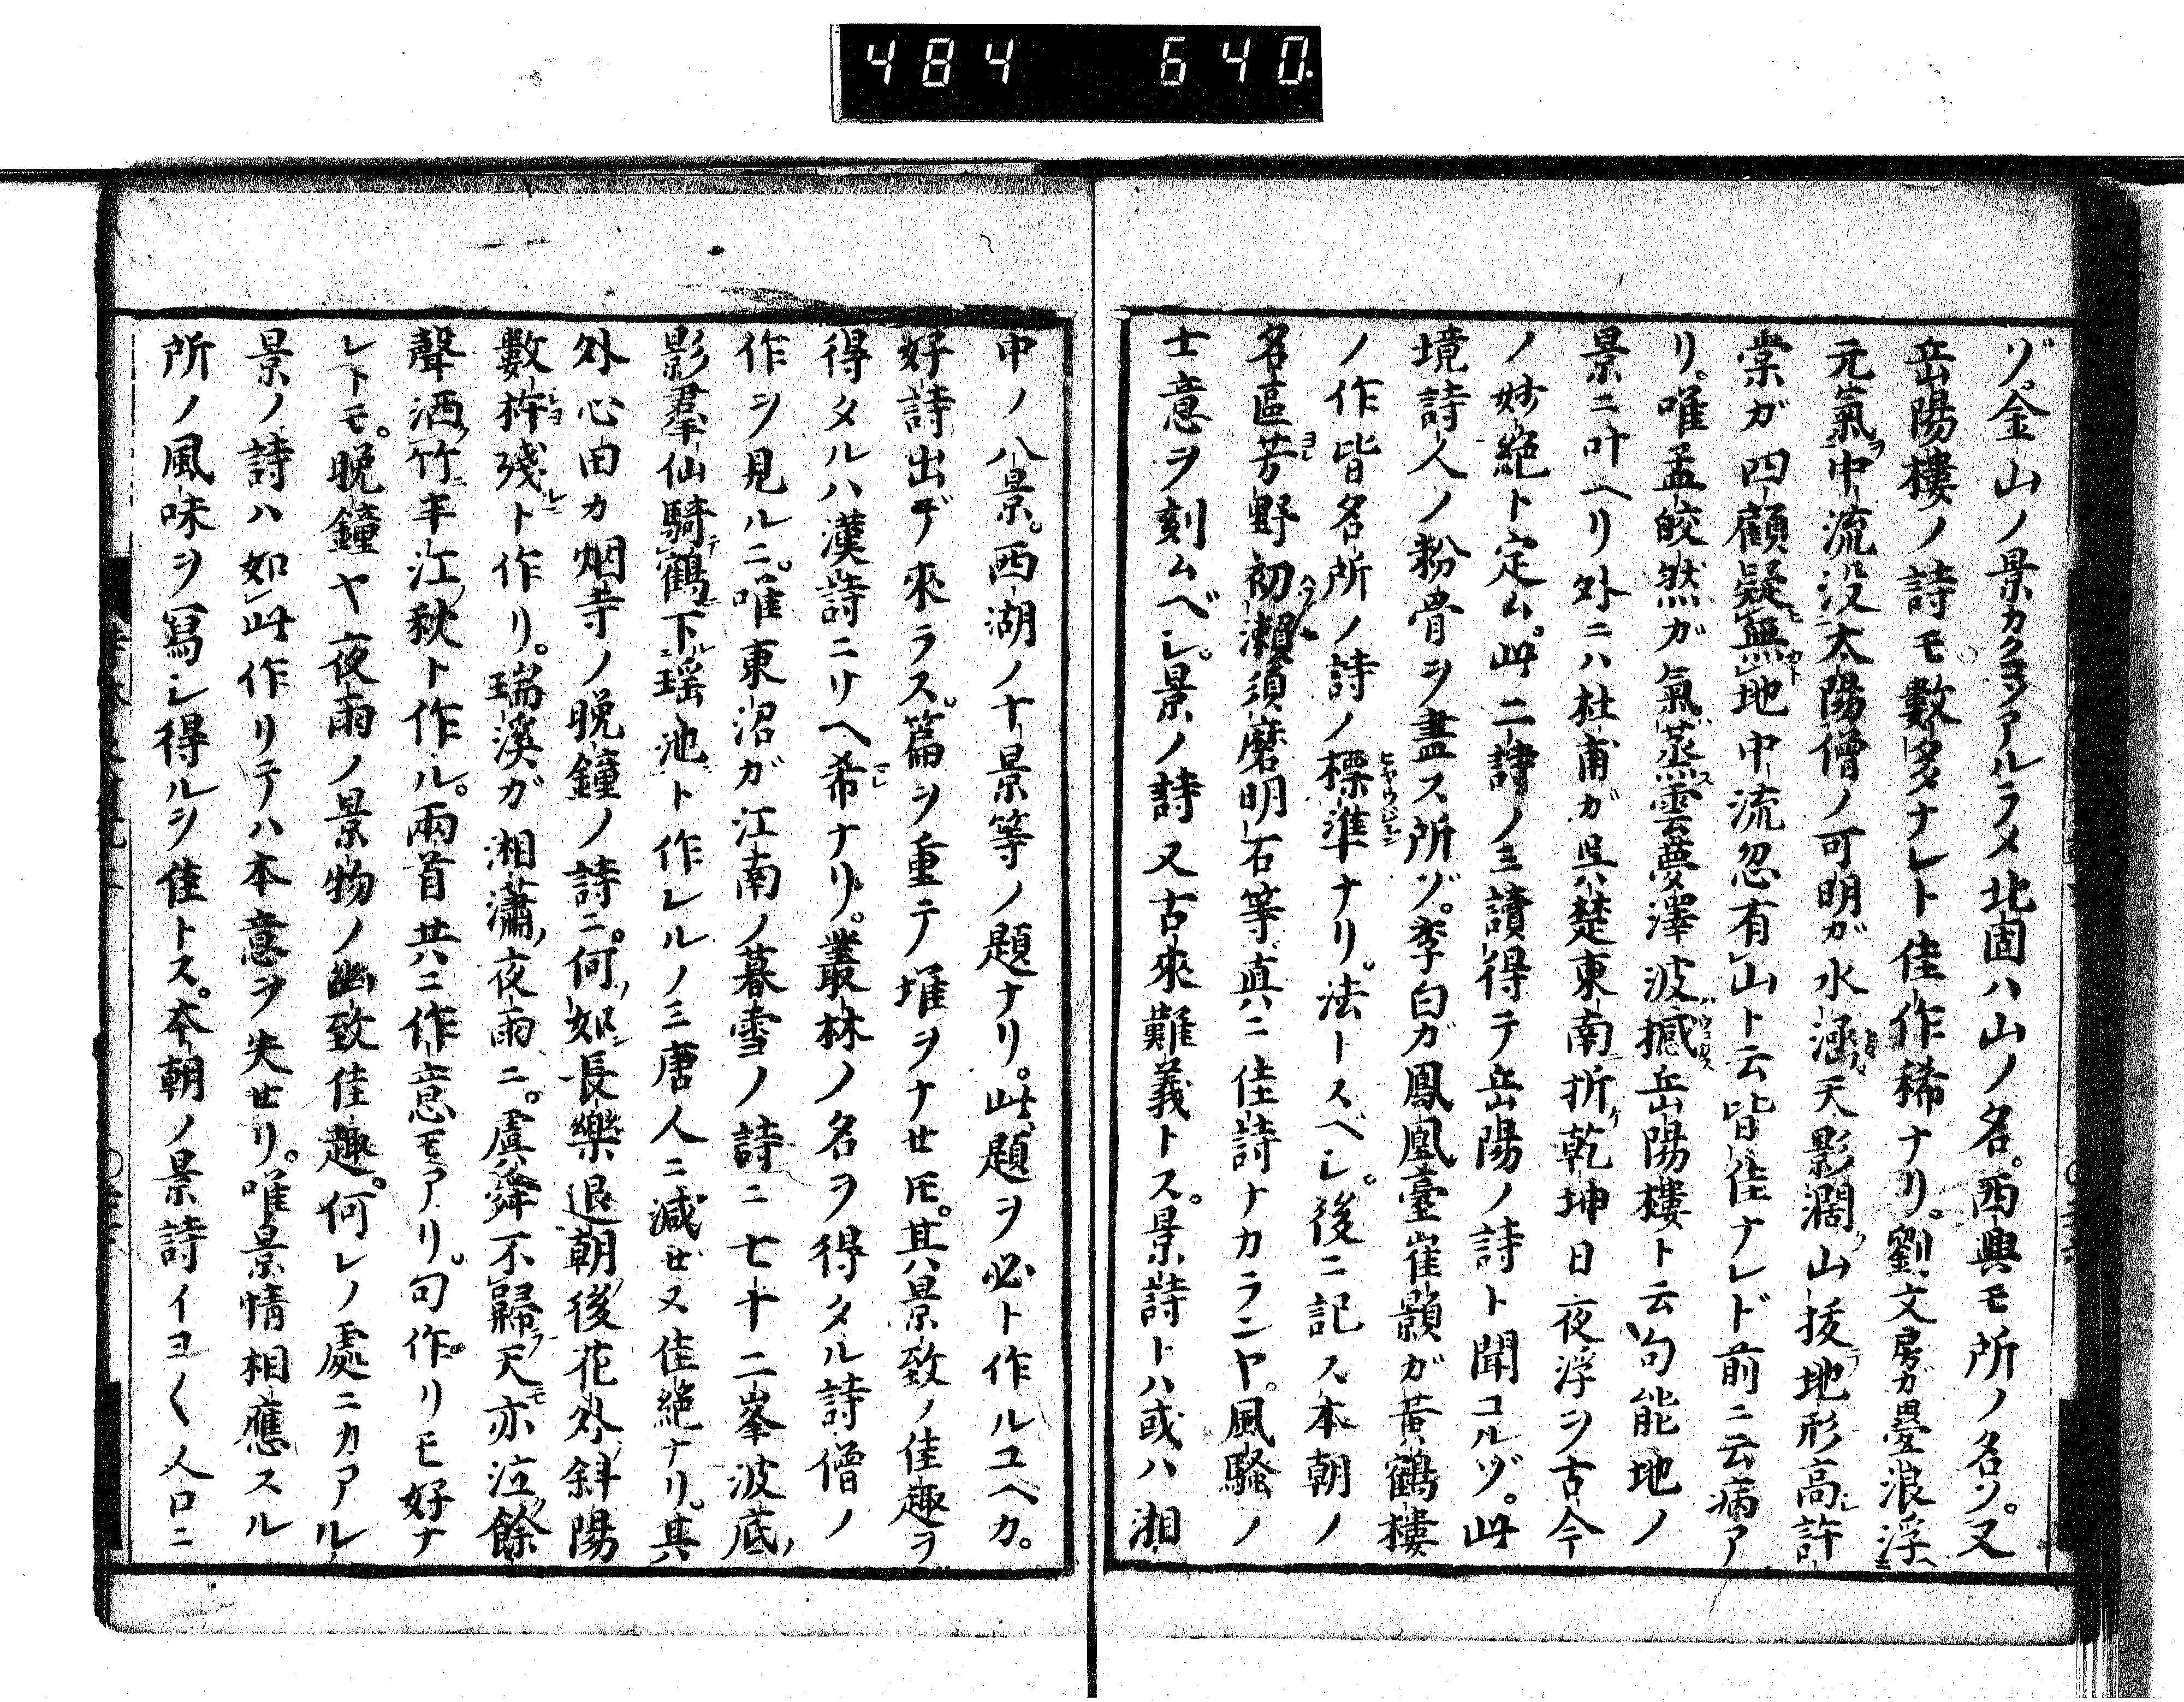 484 640
ゾ。金山ノ景カクヨウアルラメ北固ハ山ノ名。西興モ所ノ名ソ。又
岳陽樓ノ詩モ數多ナレト佳作稀ナリ。劉文房ガ疊浪浮
元氣中流没太陽僧ノ可明ガ水涵天影濶山拔地形高許
棠ガ四顧疑無地中流忽有山ト云皆佳ナレド前ニ云病ア
リ。唯孟皎然ガ氣蒸雲夢澤波撼岳陽樓ト云句能地ノ
景ニ叶ヘリ外ニハ杜甫ガ呉楚東南折乾坤日夜浮ヲ古今
ノ妙絶ト定ム。此二詩ノミ讀得テ岳陽ノ詩ト聞コルゾ。此
境詩人ノ粉骨ヲ盡ス所ゾ。李白ガ鳳凰臺崔顥ガ黄鶴樓
ノ作皆名所ノ詩ノ標準ナリ。法トスベシ。後ニ記ス本朝ノ
名區芳野初瀬須磨明石等真ニ佳詩ナカランヤ。風騷ノ
士意ヲ刻ムベシ。景ノ詩又古來難義トス。景詩トハ或ハ湘
中ノ八景。西湖ノ十景等ノ題ナリ。此題ヲ必ト作ルユヘカ。
好詩出デ來ラス。篇ヲ重テ堆ヲナセ𪜈。其景致ノ佳趣ヲ
得タルハ漢詩ニサヘ希ナリ。叢林ノ名ヲ得タル詩僧ノ
作ヲ見ルニ。唯東沼ガ江南ノ暮雪ノ詩ニ七十二峯波底
影羣仙騎鶴下瑶池ト作レルノミ唐人ニ減ぜス佳絶ナリ。其
外心田カ烟寺ノ晩鐘ノ詩ニ。何如長樂退朝後花外斜陽
數杵殘ト作リ。瑞溪ガ湘瀟夜雨ニ。虞舜不歸天亦泣餘
聲洒竹半江秋ト作ル。兩首共ニ作意モアリ。句作リモ好ナ
レトモ。晩鐘ヤ夜雨ノ景物ノ幽致佳趣。何レノ處ニカアル
景ノ詩ハ如此作リテハ本意ヲ失セリ。唯景情相應スル
所ノ風味ヲ寫シ得ルヲ佳トス。本朝ノ景詩イヨ〱人口ニ